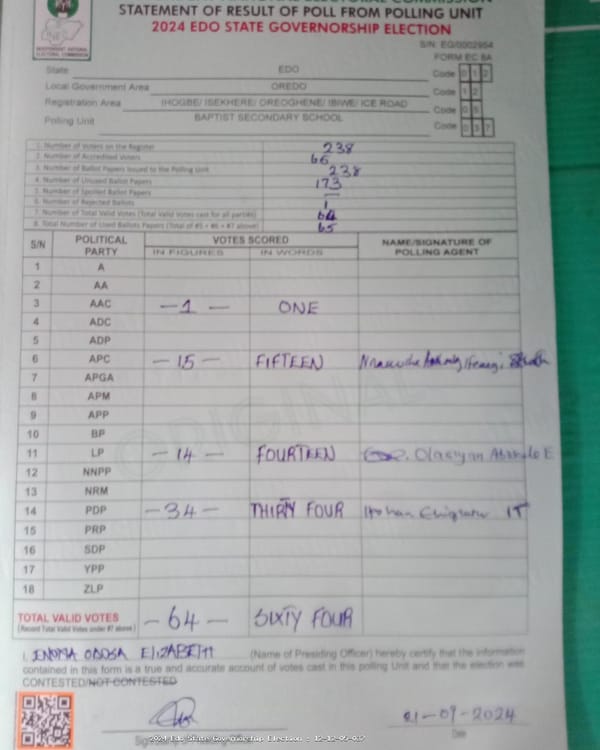 STATEMENT OF RESULT OF POLL FROM POLLING UNIT
2024 EDO STATE GOVERNORSHIP ELECTION
INDEPENDENT NATIONAL ELECTORAL COMMISSION
S/N: EG/0002954
FORM EC 8A
State EDO Code 0 1 2
Local Government Area OREDO Code 1 2
Registration Area IHOGBE/ ISEKHERE/ OREOGHENE/ IBIWE/ ICE ROAD Code 0 5
Polling Unit BAPTIST SECONDARY SCHOOL Code 0 3 7
1. Number of Voters on the Register 238
2. Number of Accredited Voters 65
3. Number of Ballot Papers Issued to the Polling Unit 238
4. Number of Unused Ballot Papers 173
5. Number of Spoiled Ballot Papers —
6. Number of Rejected Ballots 1
7. Number of Total Valid Votes (Total Valid Votes cast for all parties) 64
8. Total Number of Used Ballots Papers (Total of #5 + #6 + #7 above) 65
S/N POLITICAL PARTY VOTES SCORED NAME/SIGNATURE OF POLLING AGENT
IN FIGURES IN WORDS
1 A
2 AA
3 AAC —1— ONE
4 ADC
5 ADP
6 APC —15— FIFTEEN
7 APGA
8 APM
9 APP
10 BP
11 LP —14— FOURTEEN
12 NNPP
13 NRM
14 PDP —34— THIRTY FOUR
15 PRP
16 SDP
17 YPP
18 ZLP
ORIGINAL
TOTAL VALID VOTES —64— SIXTY FOUR
(Record Total Valid Votes under #7 above)
I, OBOSA ELIZABETH (Name of Presiding Officer) hereby certify that the information
contained in this form is a true and accurate account of votes cast in this polling Unit and that the election was
CONTESTED/NOT CONTESTED
21-09-2024
2024 Edo State Governorship Election : 12-12-05-037
Date